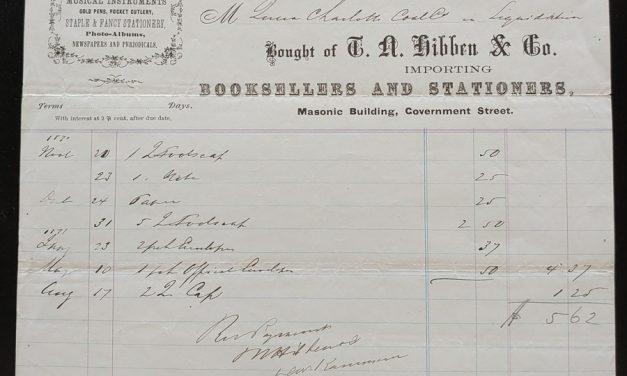 MUSICAL INSTRUMENTS
GOLD PENS, POCKET CUTLERY,
STAPLE & FANCY STATIONERY,
Photo-Albums,
NEWSPAPERS AND PERIODICALS.
M Queen Charlotte Coal Co in Liquidation
Bought of T. N. Hibben & Co.
IMPORTING
BOOKSELLERS AND STATIONERS,
Masonic Building, Government Street.
Terms Days.
With interest at 2 ⅌ cent. after due date,
Nov 20 1 Foolscap 50
23 1 Note 25
24 Paper 25
31 5 Foolscap 2 50
23 2 pkt Envelopes 37
May 10 1 pkt Official Envelopes 50 4 37
Aug 17 2 Cap 1 25
$ 5 62
Rec Payment